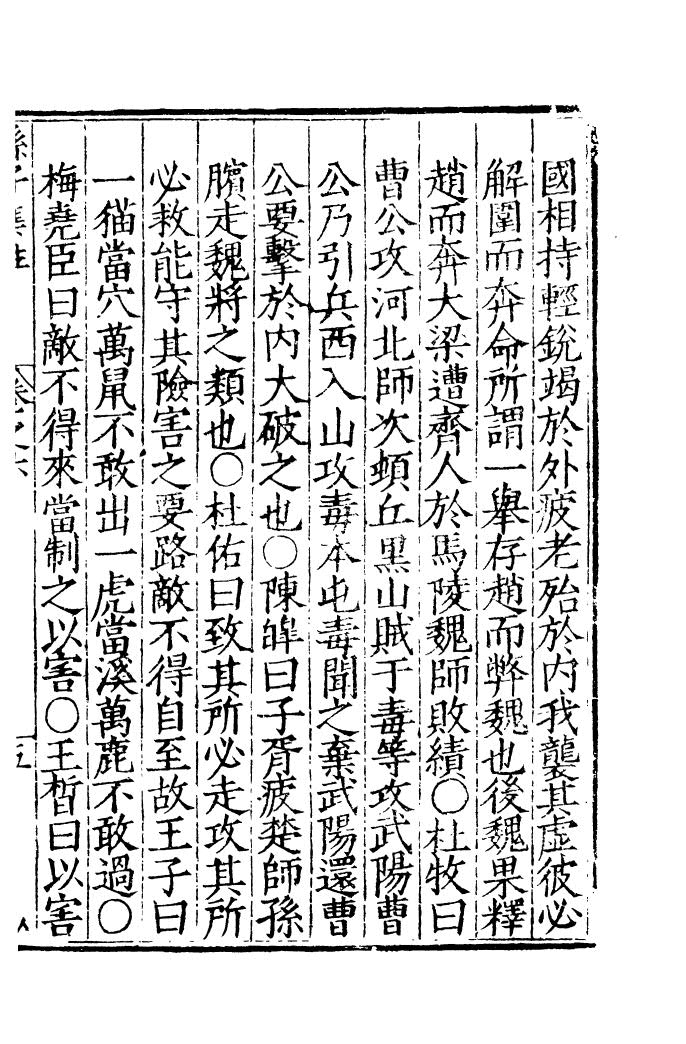 國相持輕銳竭於外疲老殆於内我襲其虛彼必
解圍而奔命所謂一舉存趙而弊魏也後魏果釋
趙而奔大梁遭齊人於馬陵魏師敗績○杜牧曰
曹公攻河北師次頓丘黑山賊于毒等攻武陽曹
公乃引兵西入山攻毒本屯毒聞之棄武陽還曹
公要擊於内大破之也○陳皥曰子胥疲楚師孫
臏走魏將之類也○杜佑曰致其所必走攻其所
必救能守其險害之要路敵不得自至故王子曰
一猫當穴萬鼠不敢出一虎當溪萬鹿不敢過○
梅堯臣曰敵不得來當制之以害○王晳曰以害
孫子集註
卷之六
五